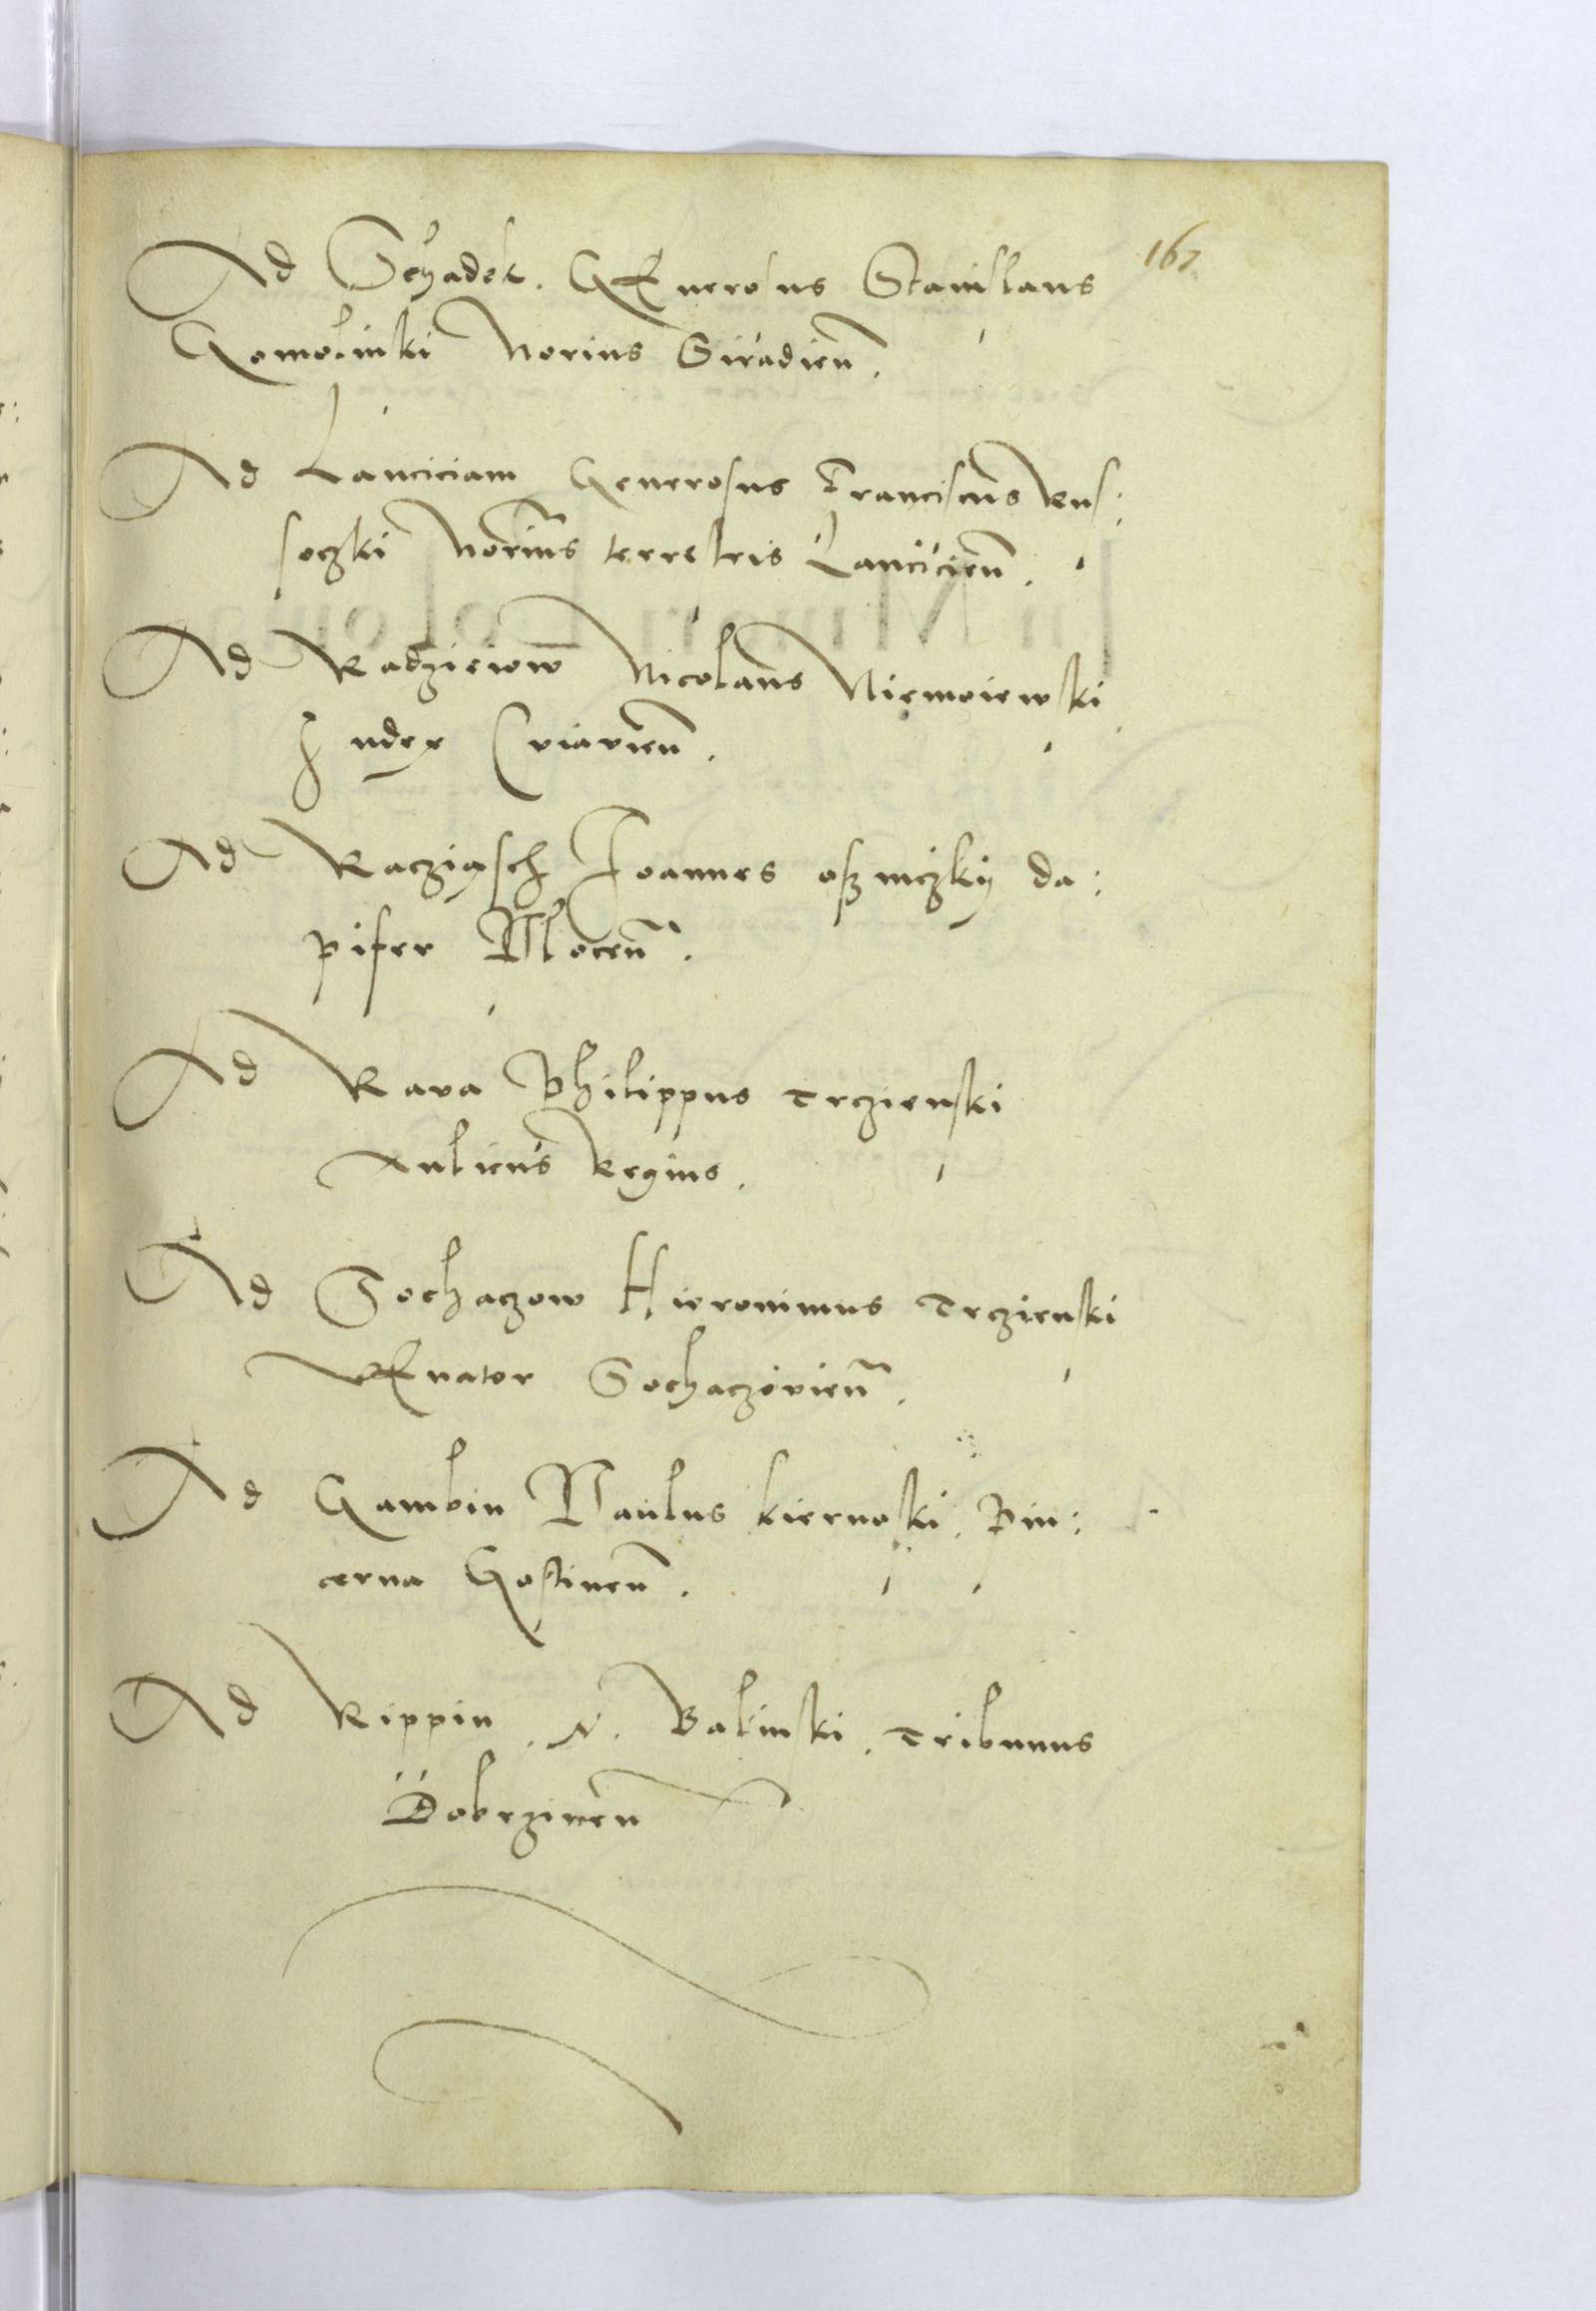 167
Ad Schadek. GEnerosus Stanislaus
Gomolinki Norius Siradien̄.
Ad Lanciciam Generosus Franciscus Rus:
soczki Norius terrestris Lancicien̄.
Ad Radzieiow Nicolaus Niemoiewski
Iudex Cuiavien̄.
Ad Raczigsch Ioannes da:
pifer Plocen̄.
Ad Rava Philippus Trczienski
Aulicus Regius.
Ad Sochaczow Hieronimus Trczienski
VEnator Sochaczovien̄.
Ad Gambin Paulus kiernoski. Pin:
cerna Gostinen̄.
Ad Rippin .N. Balinski. Tribunus
Dobrzinen̄